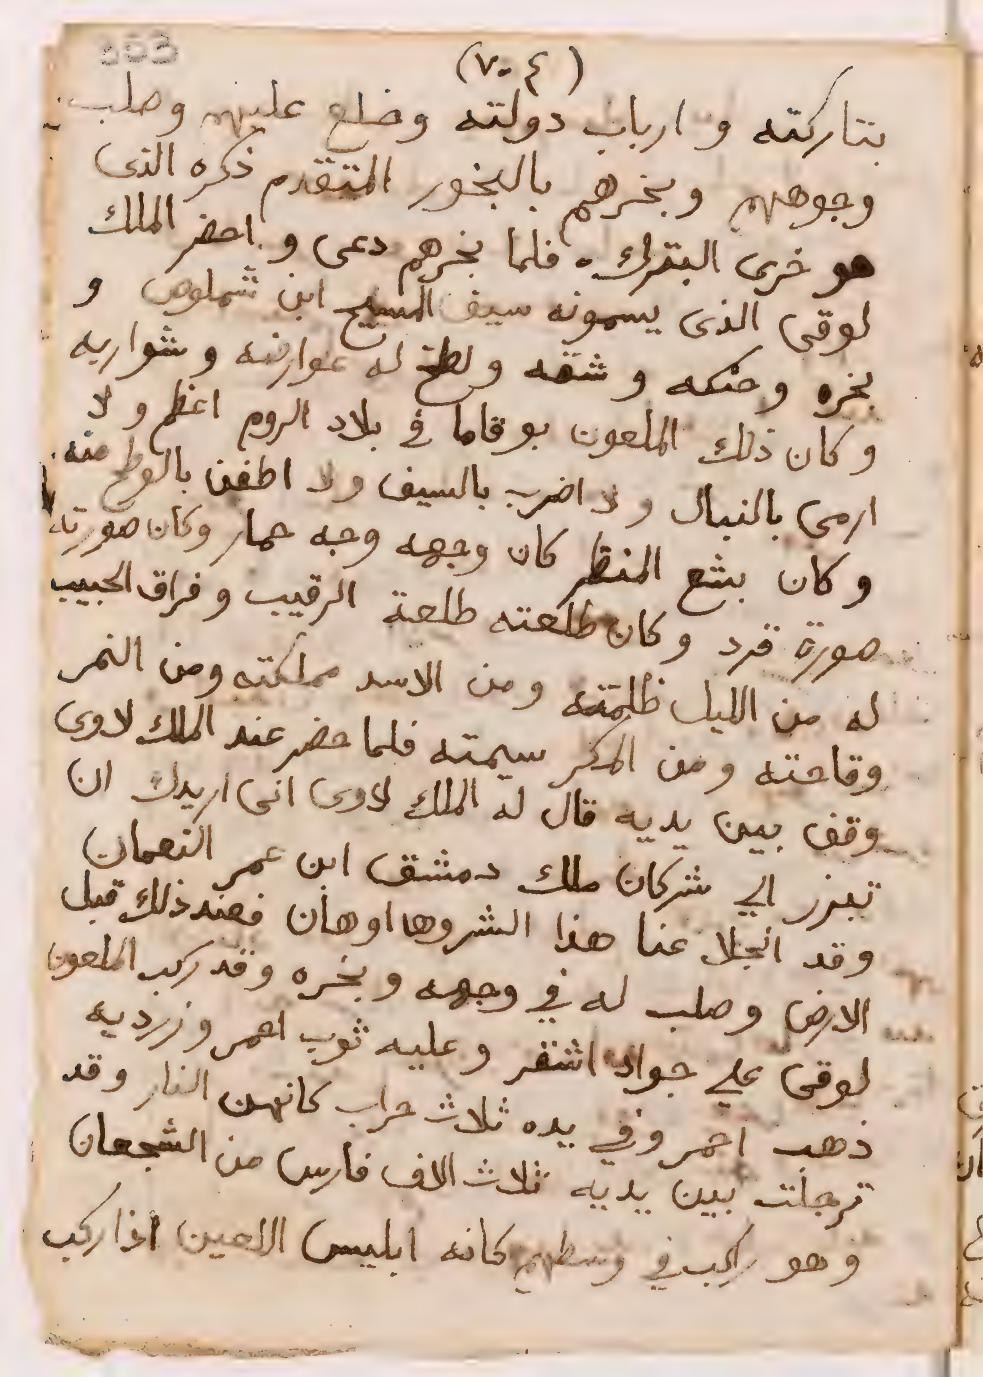 303
(٧٠٤)
بتاركته و ارباب دولته وخلع عليهم وصلب
وجوههم وبخرهم بالبخور المتقدم ذكره الذى
هو خرى البترك . فلما بخرهم دعى و احضر الملك
لوقى الذى يسمونه سيف المسيح ابن شملوص و
بخره وحنكه و شقه ولطخ له عوارضه و شواربه
وكان ذلك الملعون بوقاما في بلاد الروم اعظم و لا
ارمى بالنبال و لا اضرب بالسيف ولا اطعن بالرمح منه
وكان بشع المنظر كان وجهه وجه حمار وكان صورته
صورة قرد وكان طلعته طلعة الرقيب وفراق الحبيب
له من الليل ظلمته ومن الاسد مملكته ومن النمر
وقاحته ومن المكر سيمته فلما حضر عند الملك لاوى
وقف بين يديه قال له الملك لاوى انى اريدك ان
تبرز الي شركان ملك دمشق ابن عمر النعمان
وقد انجلا عنا هذا الشروها اوهان فعند ذلك قبل
الارض وصلب له في وجهه وبخره وقد ركب الملعون
لوقى علي جواد اشقر وعليه ثوب احمر وزرديه
ذهب احمر وفي يده ثلاث حراب كانهن النار وقد
ترجلت بين يديه ثلاث الاف فارس من الشجعان
وهو راكب في وسطهم كانه ابليس اللعين اذا ركب